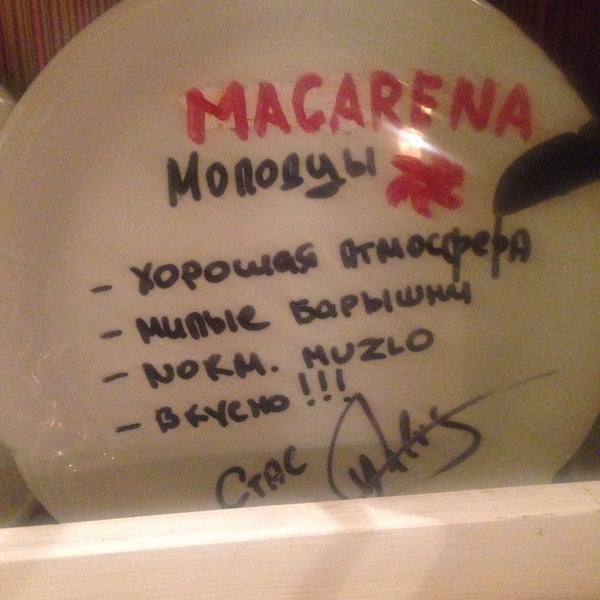 MACARENA
Молодцы
- ХОРОШАЯ АТМОСФЕРА
- МИЛЫЕ БАРЫШНИ
- NORM. MUZLO
- ВКУСНО!!!
СТАС